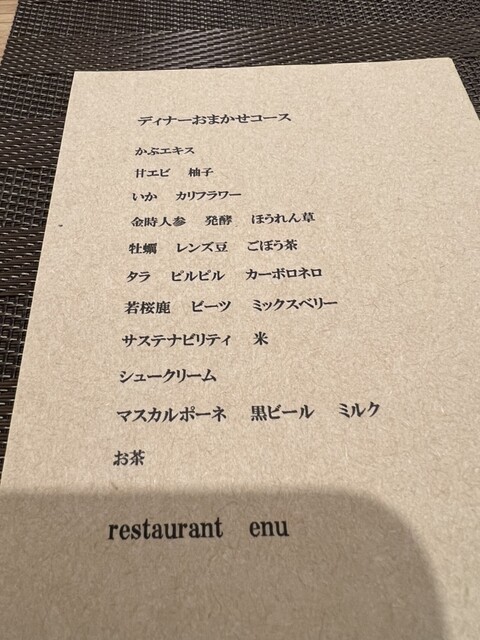 ディナーおまかせコース
かぶエキス
甘エビ 柚子
いか カリフラワー
金時人参 発酵 ほうれん草
牡蠣 レンズ豆 ごぼう茶
タラ ピルピル カーボロネロ
若桜鹿 ビーツ ミックスベリー
サステナビリティ 米
シュークリーム
マスカルポーネ 黒ビール ミルク
お茶
restaurant enu